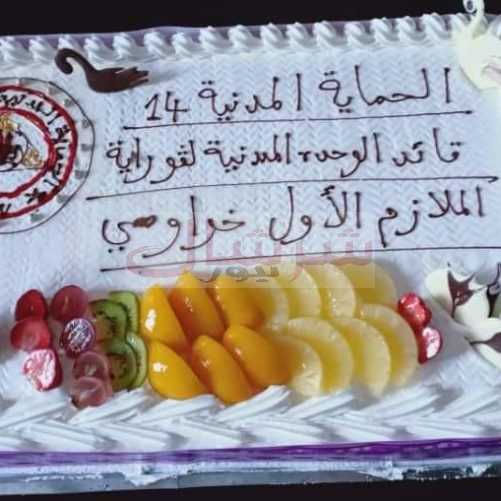 الحماية المدنية 14
قائد الوحدة المدنية لڨوراية
الملازم الأول خراوصي
شرشال
نيوز